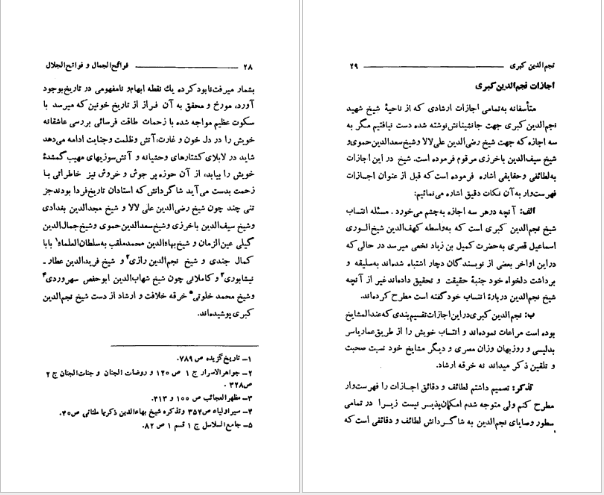 ۲۸ فوائح‌الجمال و فواتح‌الجلال
بشمار میرفت نابود کرده یك نقطه ابهام و نامفهومی در تاریخ بوجود
آورد، مورخ و محقق به آن فراز از تاریخ خونین که میرسد با
سکوت عظیم مواجه شده با زحمات طاقت فرسائی بررسی عاشقانه
خویش را در دل خون و غارت، آتش وظلمت وجنایت ادامه می‌دهد
شاید در لابلای کشتارهای وحشیانه و آتش‌سوزیهای مهیب گمشدهٔ
خویش را بیابد، از آن حوزه پر جوش و خروش نیز خاطراتی با
زحمت بدست می‌آید شاگردانش که استادان تاریخ فردا بودند جز
تنی چند چون شیخ رضی‌الدین علی لالا و شیخ مجدالدین بغدادی
وشیخ سیف‌الدین باخرزی وشیخ‌سعدالدین حموی وشیخ‌جمال‌الدین
گیلی عین‌الزمان و شیخ بهاءالدین محمدملقب به‌سلطان‌العلماء۱ بابا
کمال جندی و شیخ نجم‌الدین رازی۲ و شیخ فریدالدین عطار ـ
نیشابوری۳ و کاملانی چون شیخ شهاب‌الدین ابوحفص سهروردی۴
وشیخ محمد خلوتی۵ خرقه خلافت و ارشاد از دست شیخ نجم‌الدین
کبری پوشیده‌اند.
۱ــ تاریخ گزیده ص ۷۸۹.
۲ــ جواهرالاسرار ج ۱ ص ۱۲۵ و روضات الجنان و جنات‌الجنان ج ۲
ص ۳۲۸.
۳ــ مظهرالعجائب ص ۱۰۰ و ۲۱۳.
۴ــ سیراولیاء ص۳۵۷ وتذکره شیخ بهاءالدین ذکریا ملتانی ص۳۵.
۵ــ جامع السلاسل ج ۱ قسم ۱ ص ۸۲.
نجم‌الدین کبری ۲۹
اجازات نجم‌الدین کبری
متأسفانه به‌تمامی اجازات ارشادی که از ناحیهٔ شیخ شهید
نجم‌الدین کبری جهت جانشینانش نوشته شده دست نیافتیم مگر به
سه اجازه که جهت شیخ رضی‌الدین علی لالا وشیخ سعدالدین حموی و
شیخ سیف‌الدین باخرزی مرقوم فرموده است. شیخ در این اجازات
به‌لطائفی وحقایقی اشاره فرموده است که قبل از عنوان اجازات
فهرست‌وار به آن نکات دقیق اشاره می‌نمائیم:
الف: آنچه درهر سه اجازه به‌چشم می‌خورد. مسئله انتساب
شیخ نجم‌الدین کبری است که به‌واسطه کهف‌الدین شیخ‌الوری
اسماعیل قصری به‌حضرت کمیل بن زیاد نخعی میرسد در حالی که
دراین اواخر بعضی از نویسندگان دچار اشتباه شده‌اند به‌سلیقه و
برداشت دلخواه خود جنبهٔ حقیقت و تحقیق داده‌اند غیر از آنچه
شیخ نجم‌الدین دربارهٔ انتساب خود گفته است مطرح کرده‌اند.
ب: نجم‌الدین کبری در این اجازات تقسیم‌بندی که عندالمشایخ
بوده است مراعات نموده‌اند و انتساب خویش را از طریق عماریاسر
بدلیسی و روزبهان وزان مصری و دیگر مشایخ خود نسبت صحبت
و تلقین ذکر میداند نه خرقه ارشاد.
تذکر: تصمیم داشتم لطائف و دقائق اجازات را فهرست‌وار
مطرح کنم ولی متوجه شدم امکان‌پذیر نیست زیرا در تمامی
سطور وصایای نجم‌الدین به شاگردانش لطائف و دقائقی است که